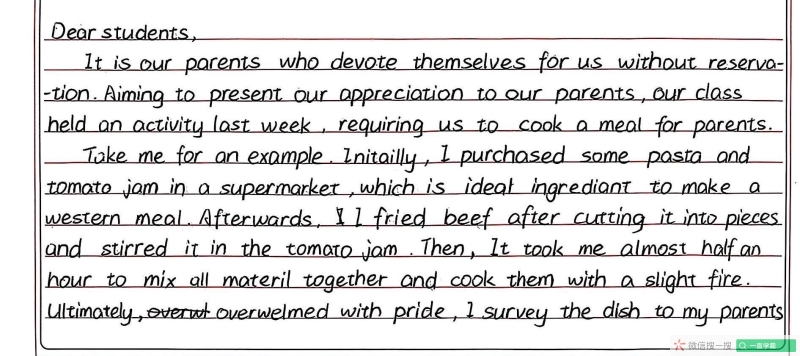 Dear students,
It is our parents who devote themselves for us without reserva-
-tion. Aiming to present our appreciation to our parents, our class
held an activity last week, requiring us to cook a meal for parents.
Take me for an example. Initailly, I purchased some pasta and
tomato jam in a supermarket, which is ideal ingrediant to make a
western meal. Afterwards, I I fried beef after cutting it into pieces
and stirred it in the tomato jam. Then, It took me almost half an
hour to mix all materil together and cook them with a slight fire.
Ultimately, overwl overwelmed with pride, I survey the dish to my parents
微信搜一搜 一言字幕